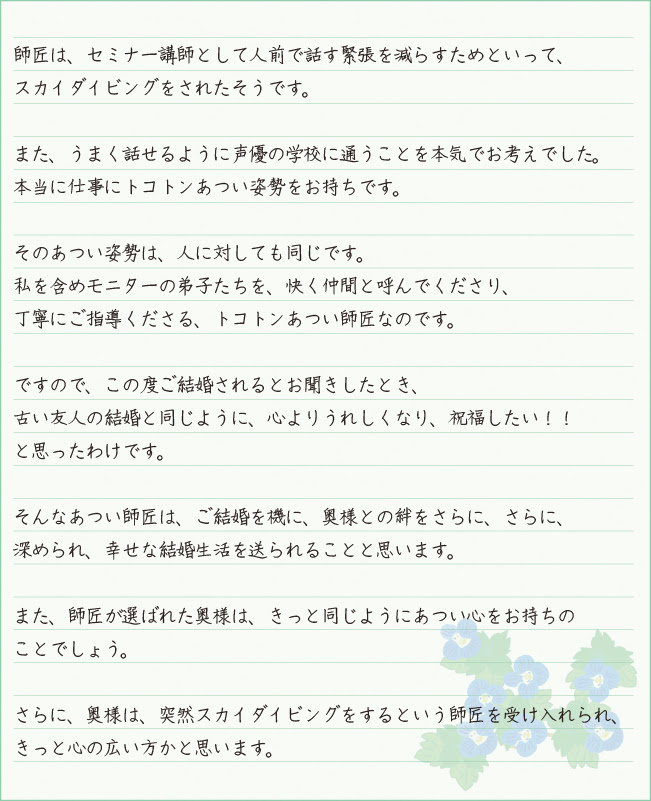 師匠は、セミナー講師として人前で話す緊張を減らすためといって、
スカイダイビングをされたそうです。
また、うまく話せるように声優の学校に通うことを本気でお考えでした。
本当に仕事にトコトンあつい姿勢をお持ちです。
そのあつい姿勢は、人に対しても同じです。
私を含めモニターの弟子たちを、快く仲間と呼んでくださり、
丁寧にご指導くださる、トコトンあつい師匠なのです。
ですので、この度ご結婚されるとお聞きしたとき、
古い友人の結婚と同じように、心よりうれしくなり、祝福したい！！
と思ったわけです。
そんなあつい師匠は、ご結婚を機に、奥様との絆をさらに、さらに、
深められ、幸せな結婚生活を送られることと思います。
また、師匠が選ばれた奥様は、きっと同じようにあつい心をお持ちの
ことでしょう。
さらに、奥様は、突然スカイダイビングをするという師匠を受け入れられ、
きっと心の広い方かと思います。